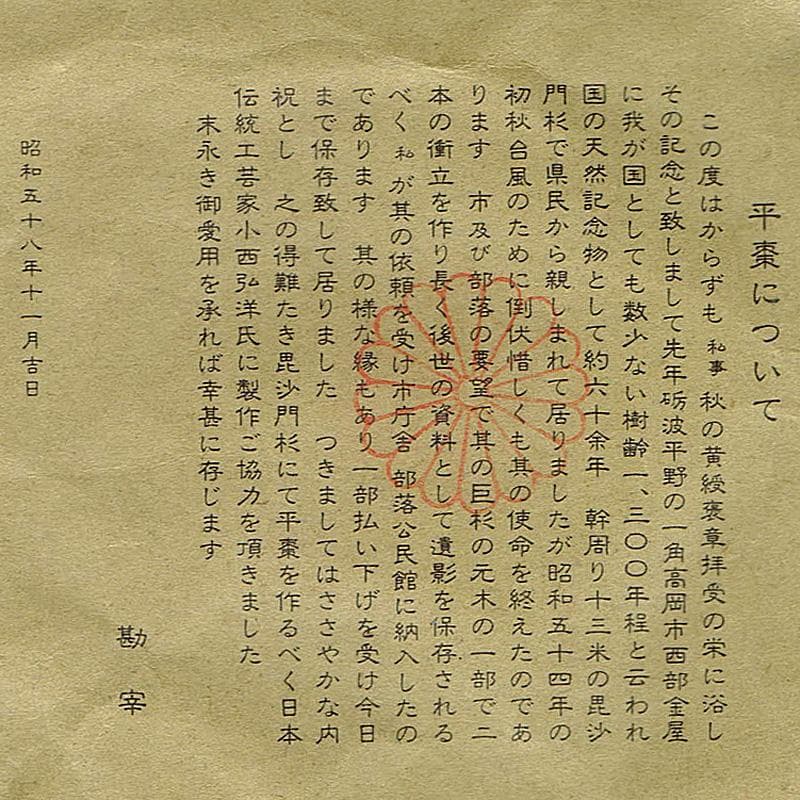 平棗について
この度はからずも 私事 秋の黄綬褒章拝受の栄に浴し
その記念と致しまして先年砺波平野の一角高岡市西部金屋
に我が国としても数少ない樹齢一、三〇〇年程と云われ
国の天然記念物として約六十余年 幹周り十三米の毘沙
門杉で県民から親しまれて居りましたが昭和五十四年の
初秋台風のために倒伏惜しくも其の使命を終えたのであ
ります 市及び部落の要望で其の巨杉の元木の一部で二
本の衝立を作り長く後世の資料として遺影を保存される
べく 私 が其の依頼を受け市庁舎 部落公民館に納入したの
であります 其の様な縁もあり一部払い下げを受け今日
まで保存致して居りました つきましてはささやかな内
祝とし 之の得難たき毘沙門杉にて平棗を作るべく日本
伝統工芸家小西弘洋氏に製作ご協力を頂きました
末永き御愛用を承れば幸甚に存じます
勘宰
昭和五十八年十一月吉日